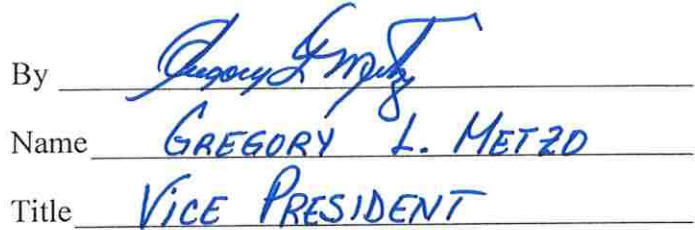 By Gregory L Metzo
Name GREGORY L. METZO
Title VICE PRESIDENT